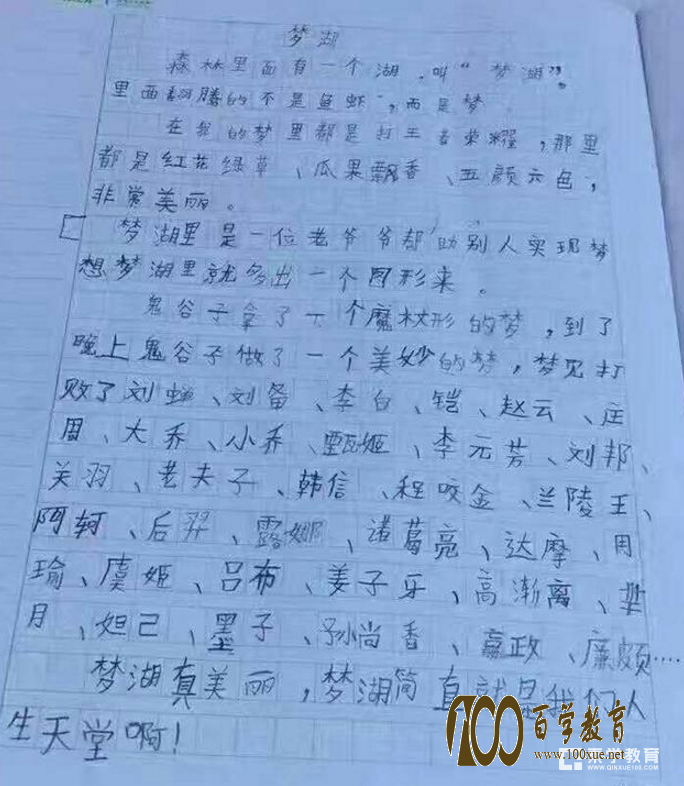 梦湖
森林里面有一个湖，叫“梦湖”。
里面翻腾的不是鱼虾，而是梦。
在我的梦里都是打王者荣耀，那里
都是红花绿草、瓜果飘香、五颜六色，
非常美丽。
梦湖里是一位老爷爷帮助别人实现梦
想梦湖里就多出一个图形来。
鬼谷子拿了一个魔杖形的梦，到了
晚上鬼谷子做了一个美妙的梦，梦见打
败了刘蝉、刘备、李白、铠、赵云、庄
周、大乔、小乔、甄姬、李元芳、刘邦、
关羽、老夫子、韩信、程咬金、兰陵王、
阿轲、后羿、露娜、诸葛亮、达摩、周
瑜、虞姬、吕布、姜子牙、高渐离、芈
月、妲己、墨子、孙尚香、嬴政、廉颇……
梦湖真美丽，梦湖简直就是我们人
生天堂啊！
100百学教育
www.100xue.net
亲学教育
WWW.QINXUE100.COM